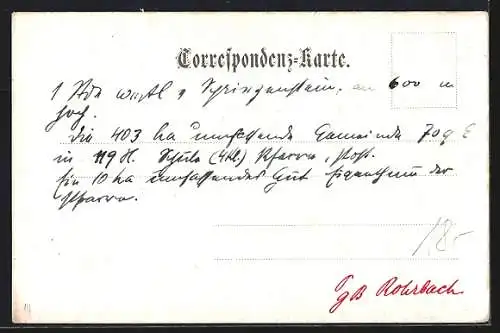 Correspondenz-Karte.
1 Stde westl v Sprinzenstein, 600 m
hoch.
Die 403 ha umfassende Gemeinde 709 E
in 119 H. Schule (4kl.) Pfarre, Post.
Ein 10 ha umfassendes Gut Eigenthum der
Pfarre.
18.-
gB Rohrbach